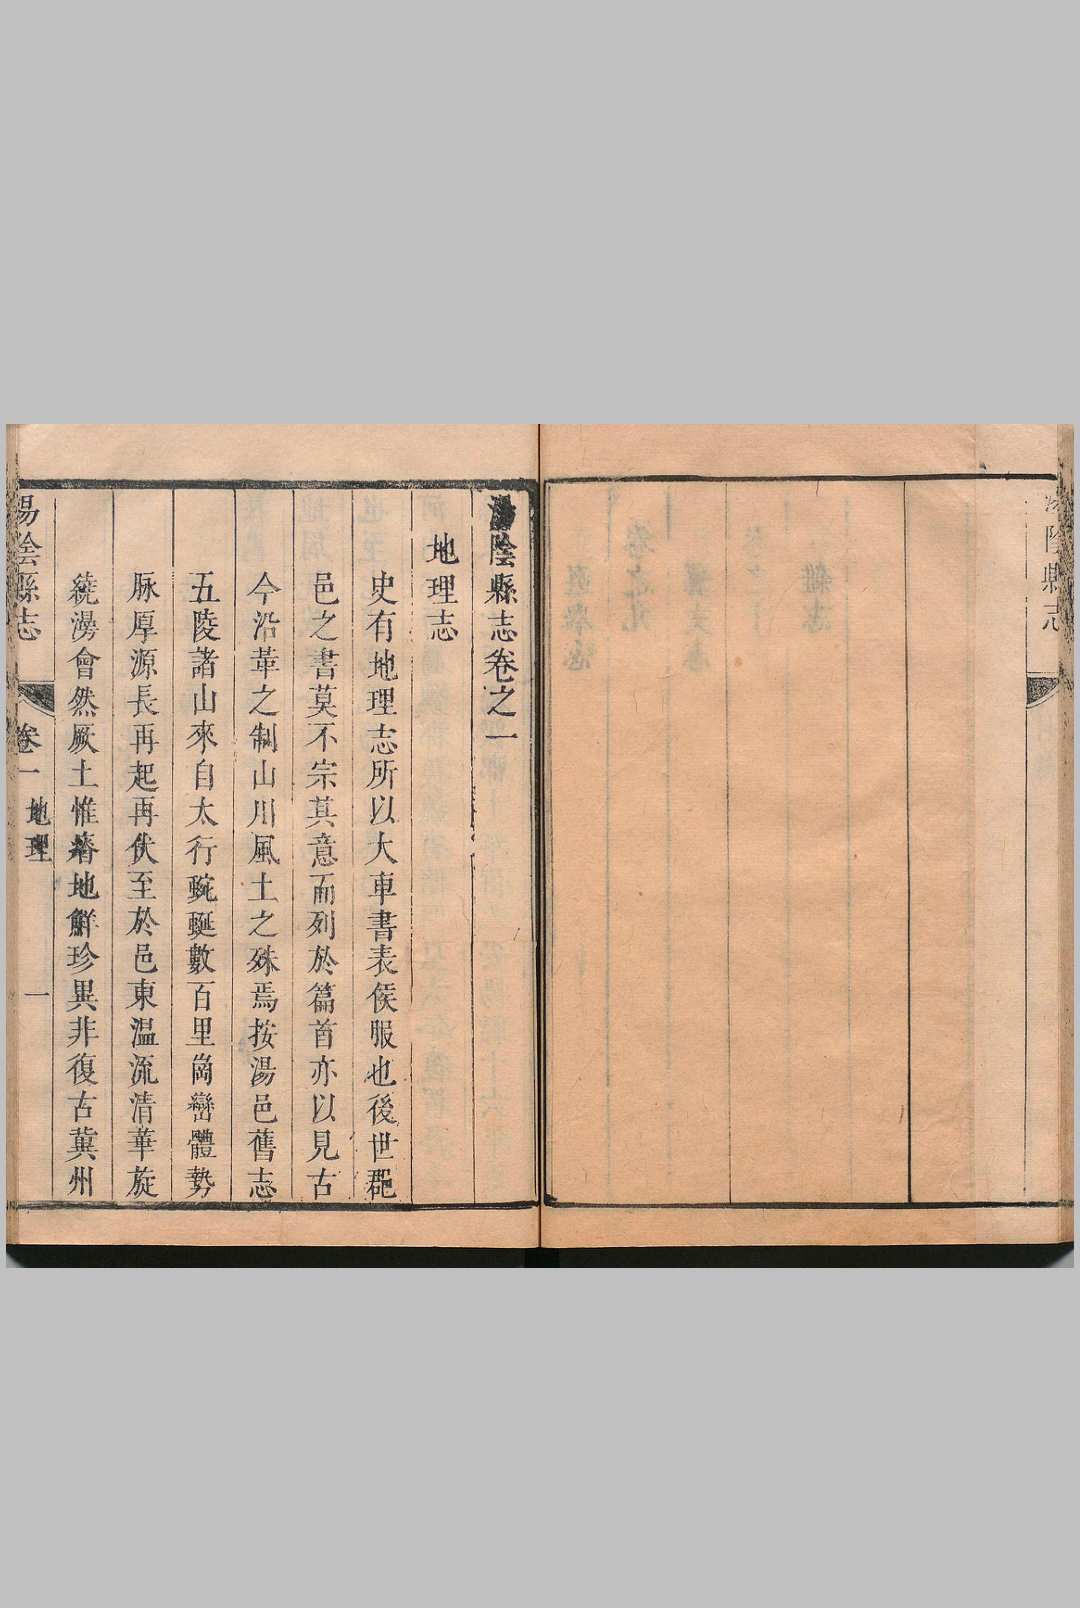 陰縣志
湯陰縣志卷之一
地理志
史有地理志所以大車書表侯服也後世郡
邑之書莫不宗其意而列於篇首亦以見古
今沿革之制山川風土之殊焉按湯邑舊志
五陵諸山來自太行蜿蜒數百里崗巒體勢
脉厚源長再起再伏至於邑東温流清華旋
繞澇會然厥土惟瘠地鮮珍異非復古冀州
湯陰縣志 卷一 地理 一